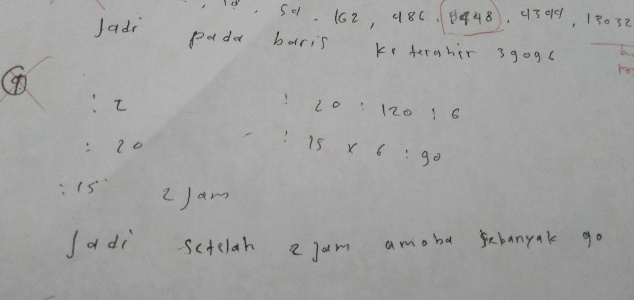 18, 54, 162, 486, 1448, 4344, 13032
Jadi pada baris ke terahir 39096
9
: 2 : 20 : 120 : 6
: 20 : 15 x 6 : 90
: 15 2 Jam
Jadi setelah 2 jam amoba sebanyak 90